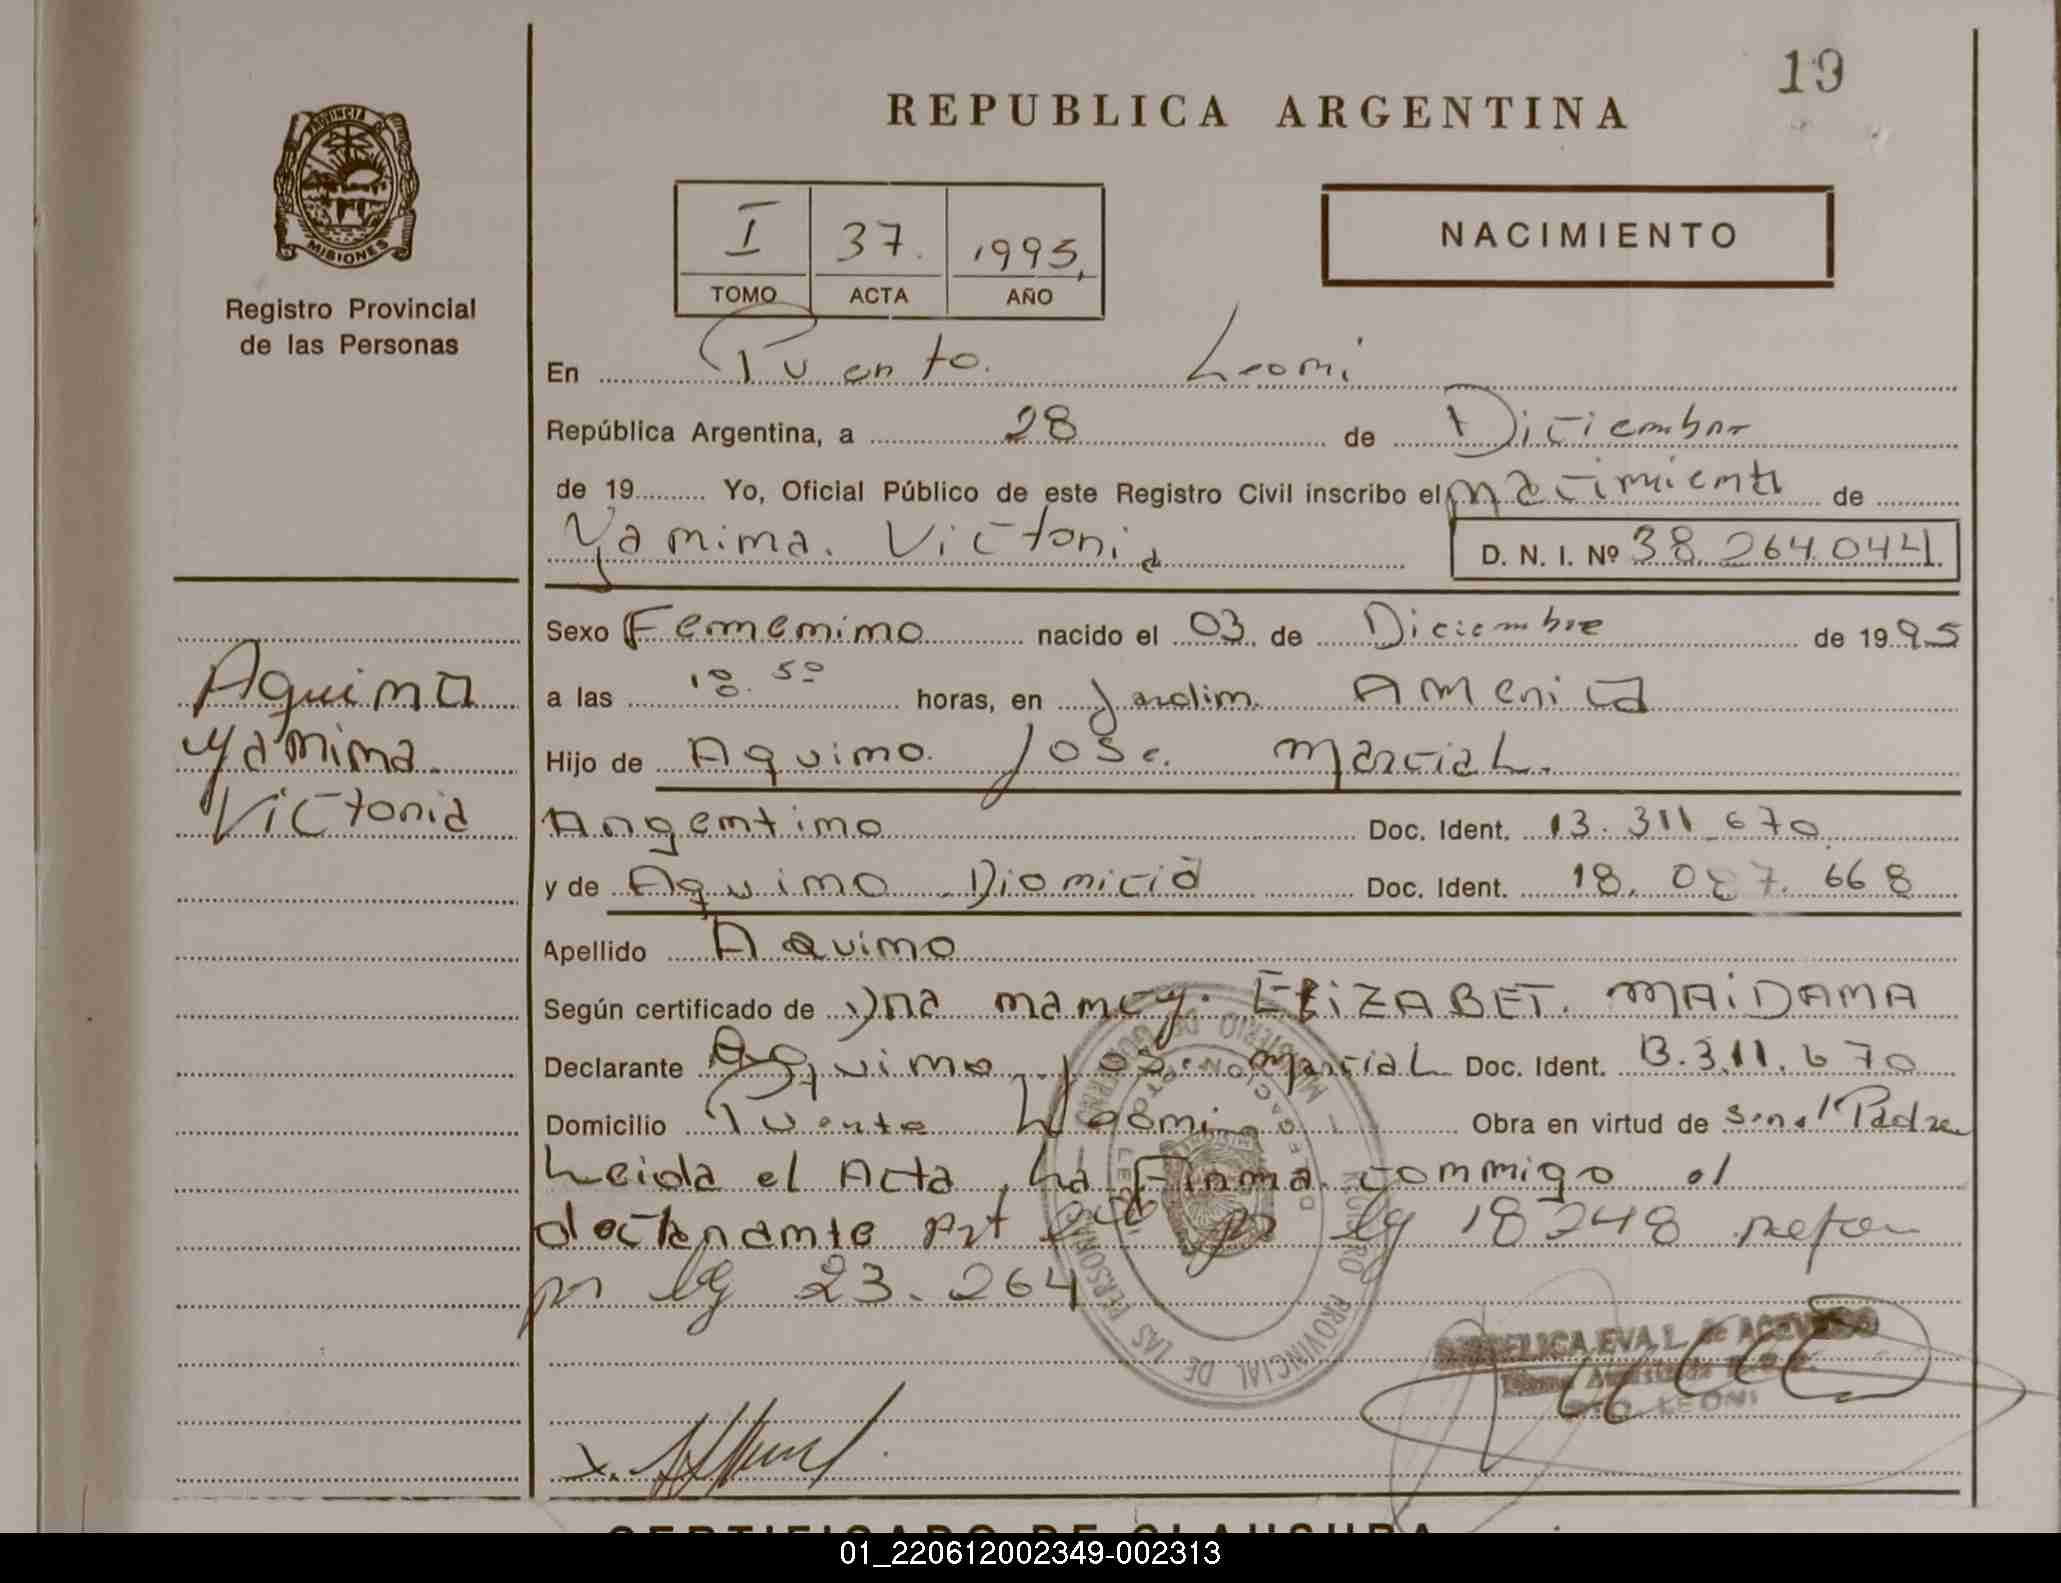 19
REPUBLICA ARGENTINA
PROVINCIA DE
MISIONES
Registro Provincial
de las Personas
I 37. 1995,
TOMO ACTA AÑO
NACIMIENTO
En Puento. Leoni
República Argentina, a 28 de Diciembre
de 19 Yo, Oficial Público de este Registro Civil inscribo el nacimiento de
Yanina. Victoria
D. N. I. Nº 38.264.044
Sexo Femenino nacido el 03 de Diciembre de 1995
a las 18.50 horas, en Jardin. America
Hijo de Aquino Jose. Marcial.
Argentino Doc. Ident. 13.311.670
y de Aquino Dionicia Doc. Ident. 18.087.668
Apellido Aquino
Aquino
Yanina
Victoria
Según certificado de nancy. ELIZABET. MAIDANA
Declarante Aquino Jose Marcial Doc. Ident. 13.311.670
Domicilio Puente Leoni Obra en virtud de Ser el Padre
Leida el Acta, La Firma conmigo el
declarante Art ley 18248 refor
por ley 23.264
REGISTRO PROVINCIAL DE LAS PERSONAS
EVA L. de ACEVEDO
PTO. LEONI
CERTIFICADO DE CLAUSURA
01_220612002349-002313